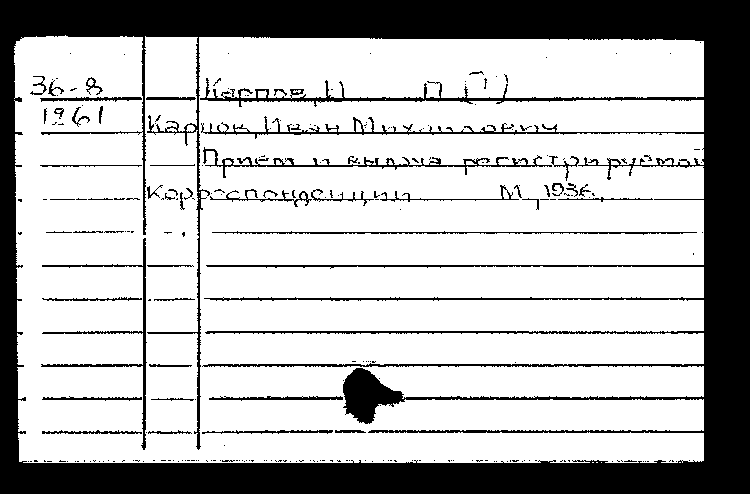 36-8 Карпов, И П (1)
1961 Карпов, Иван Михаилович
Прием и выдача регистрируемой
корреспонденции М, 1936.